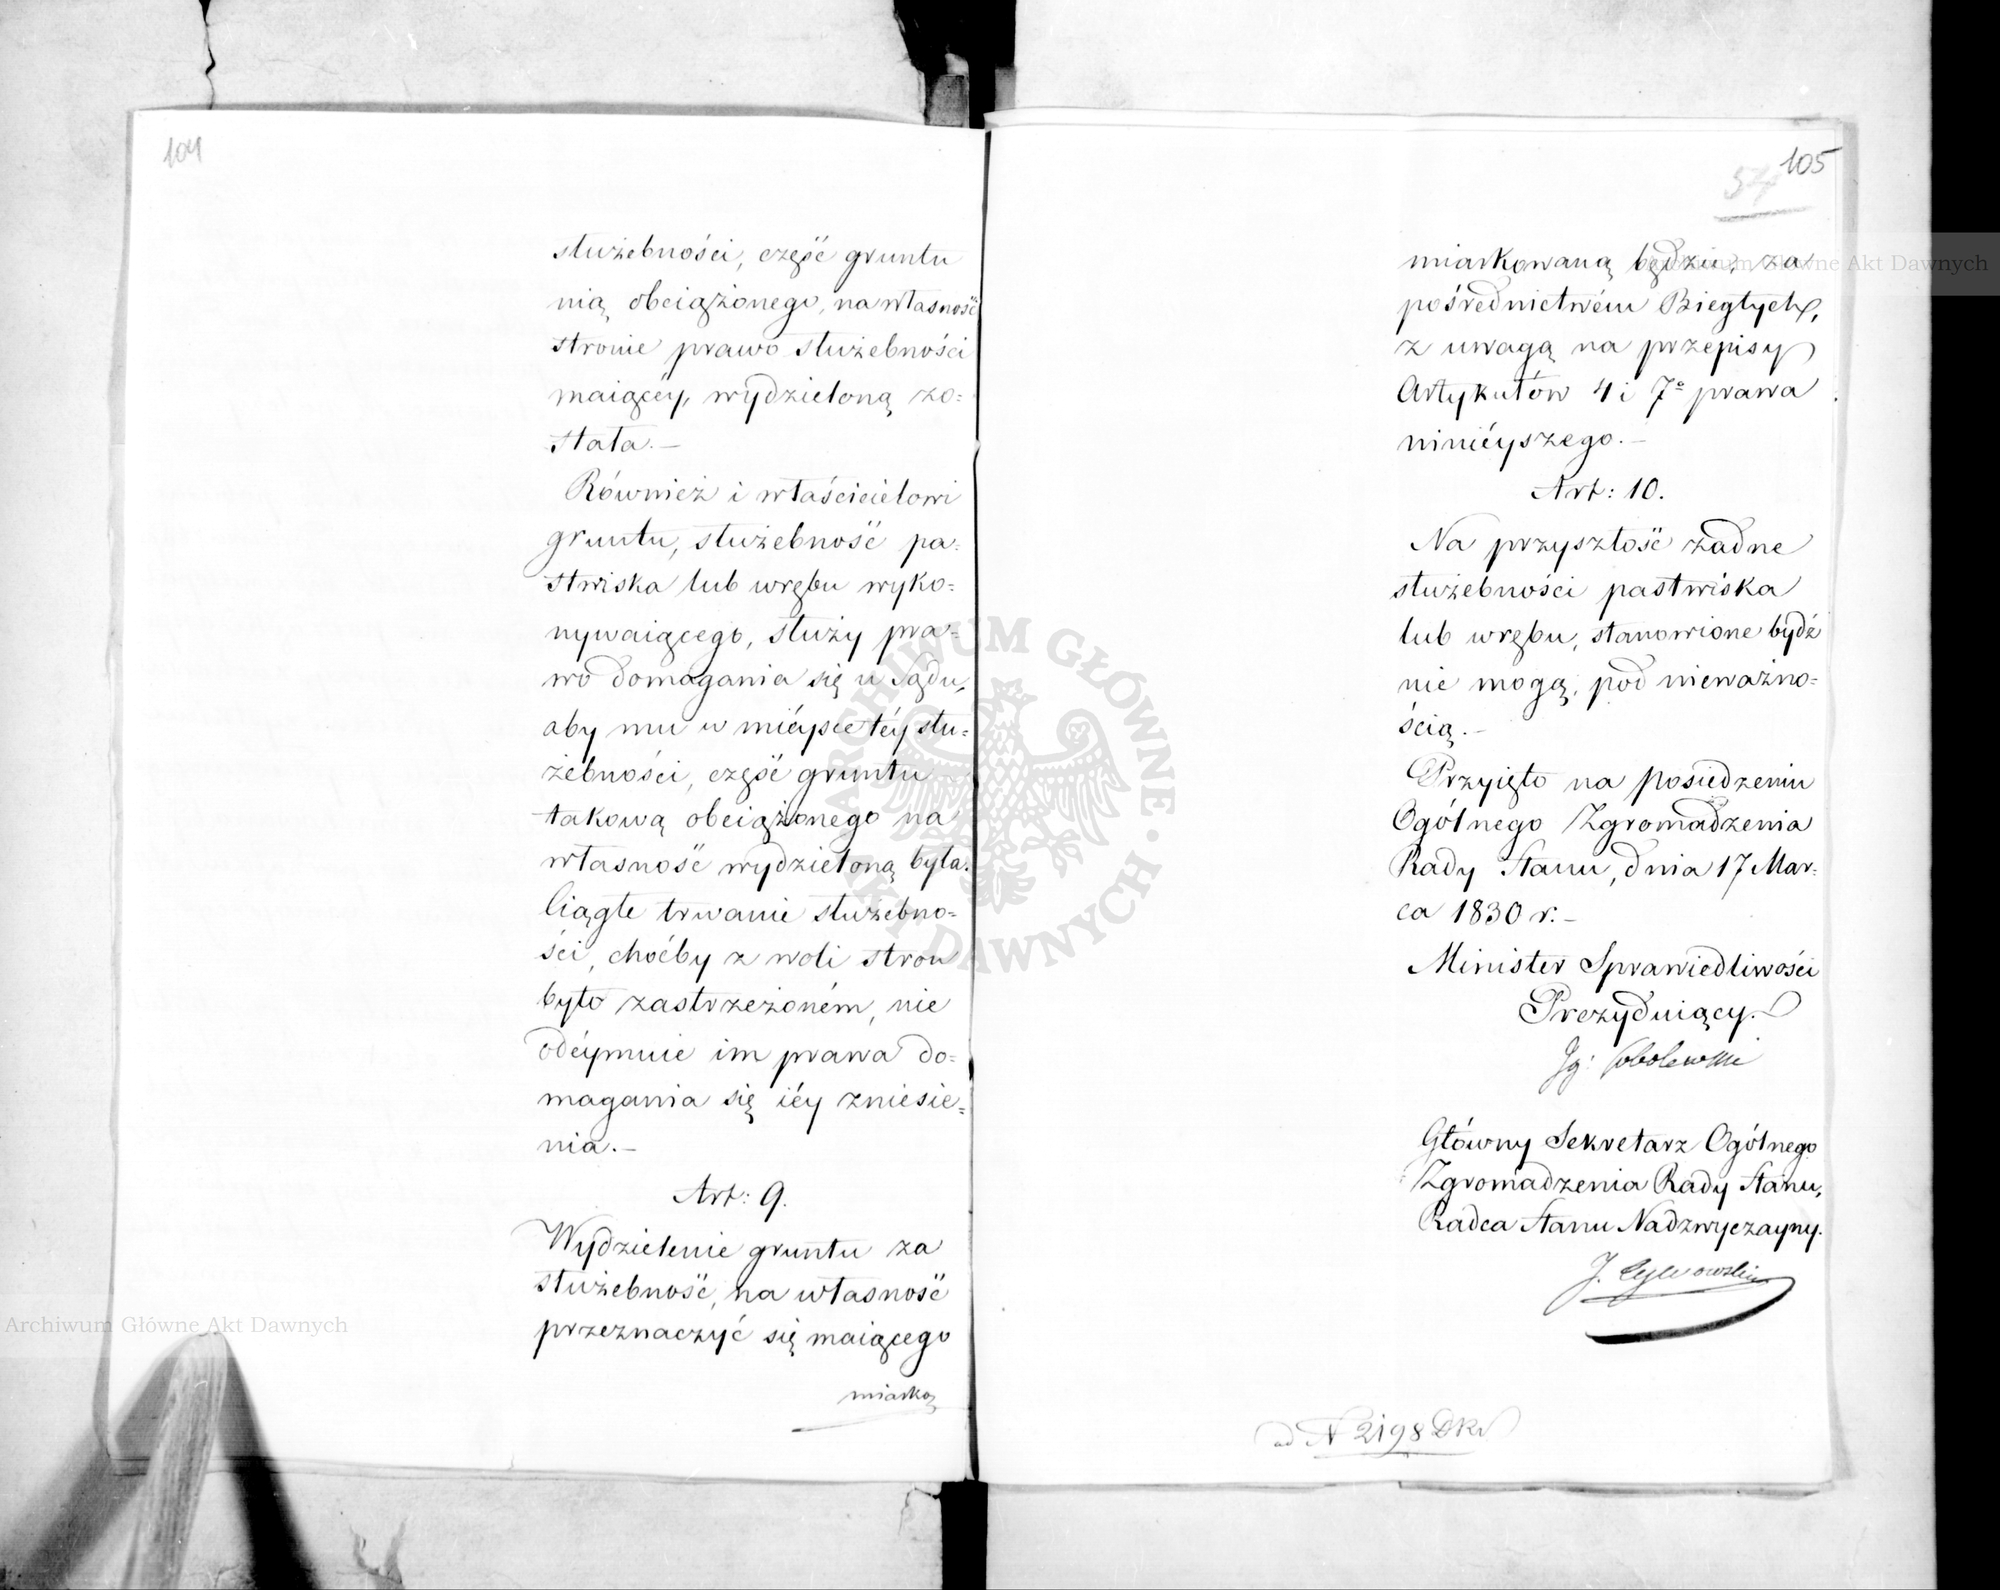 104
służebności, część gruntu
nią obciążonego, na własność
stronie prawo służebności
maiącéy, wydzieloną zo=
stała.—
Również i właścicielowi
gruntu, służebność pa=
stwiska lub wrębu wyko=
nywaiącego, służy pra=
wo domagania się u Sądu,
aby mu w miéysce téy słu=
żebności, część gruntu
takową obciążonego na
własność wydzieloną była.
Ciągłe trwanie służebno=
ści, choćby z woli stron
było zastrzeżoném, nie
odéymuie im prawa do=
magania się iéy zniesie=
nia.—
Art: 9.
Wydzielenie gruntu za
służebność, na własność
przeznaczyć się maiącego
miarko
105
57
miarkowaną będzie, za
pośrednictwém Biegłych,
z uwagą na przepisy
Artykułów 4 i 7º prawa
ninieyszego.—
Art: 10.
Na przyszłość żadne
służebności pastwiska
lub wrębu, stanowione bydź
nie mogą, pod nieważno=
ścią.—
Przyięto na posiedzeniu
Ogólnego Zgromadzenia
Rady Stanu, dnia 17 Mar=
ca 1830 r.—
Minister Sprawiedliwości
Prezyduiący.
Ig: Sobolewski
Główny Sekretarz Ogólnego
Zgromadzenia Rady Stanu,
Radca Stanu Nadzwyczayny.
J.
ad N 2198 DKr
Archiwum Główne Akt Dawnych
Archiwum Główne Akt Dawnych
ARCHIWUM GŁÓWNE · AKT DAWNYCH ·